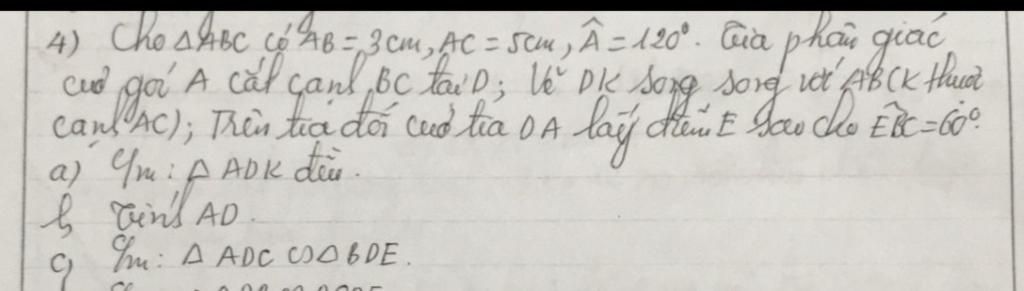 4) Cho △ABC có AB = 3cm, AC = 5cm, Â = 120°. Tia phân giác
của góc A cắt cạnh BC tại D; Vẽ DK song song với AB (K thuộc
cạnh AC); Trên tia đối của tia DA lấy điểm E sao cho EB̂C = 60°.
a) C/m: △ ADK đều.
b, Tính AD.
c) C/m: △ ADC ∽ △ BDE.